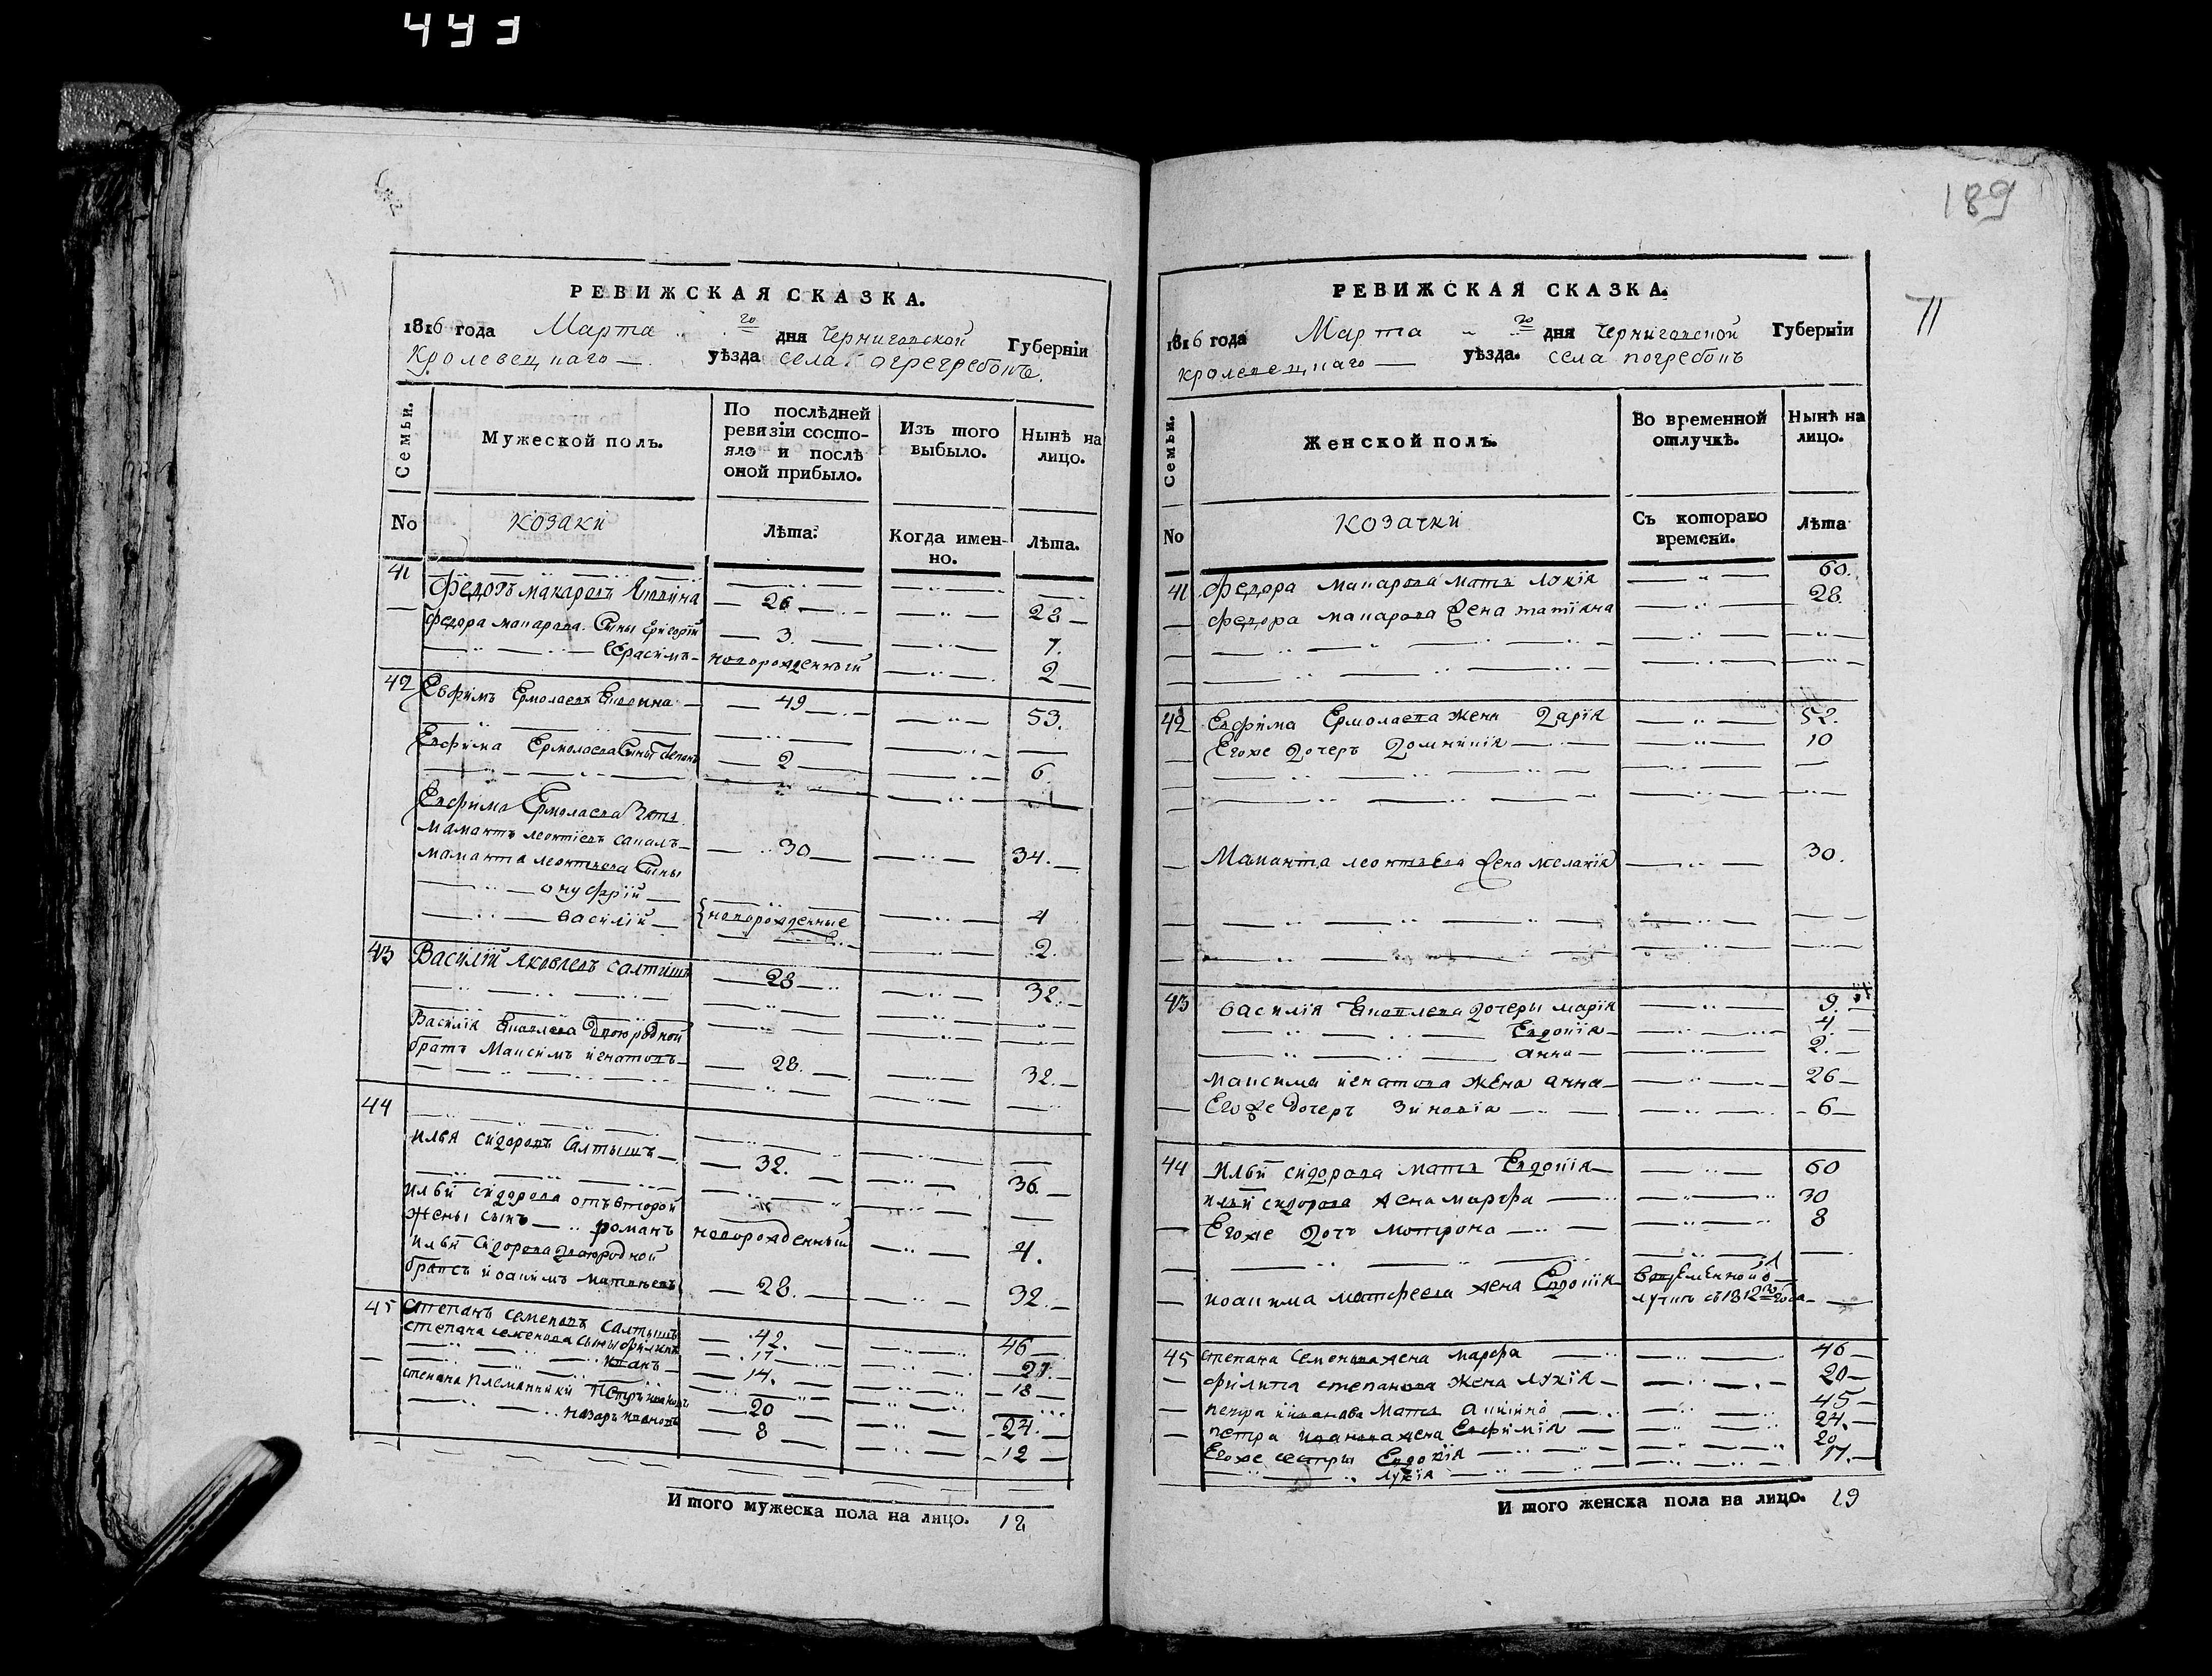 443
РЕВИЖСКАЯ СКАЗКА.
1816 года Марта го дня Черниговской Губерніи
Кролевецкаго уѣзда села
Семьи.
Мужеской полъ.
По послѣдней ревизіи состояло и послѣ оной прибыло.
Изъ того выбыло.
Нынѣ на лицо.
No
Козаки
Лѣта.
Когда именно.
Лѣта.
41 Федоръ макаровъ 26 28
Федора макарова Сыны Григорій 3 7.
Герасимъ новорожденный 2
42 Евфимъ Ермолаевъ 49 53.
Евфима Ермолаева Сынъ Степанъ 2 6.
Евфима Ермолаева
мамантъ леонтіевъ 30 34.
маманта леонтьева Сыны
онуфрій
василій новорожденные 4 2.
43 Василій Яковлевъ салтишъ 28 32.
Василія Яковлева Двоюродной
братъ Максимъ игнатовъ 28. 32.
44
илья сидоровъ Салтышъ 32. 36.
ильи сидорова отъ второй
жены сынъ романъ новорожденный 4.
ильи сидорова двоюродной
братъ иоакимъ матвѣевъ 28. 32.
45 Степанъ семеновъ Салтышъ 42. 46
степана семенова сыны филипъ 17 21.
иванъ 14. 18
степана племянники Петръ ивановъ 20 24.
назаръ ивановъ 8 12
Итого мужеска пола на лицо. 12
189
71
РЕВИЖСКАЯ СКАЗКА.
1816 года Марта го дня Черниговской Губерніи
кролевецкаго уѣзда. села погребокъ
Семьи.
Женской полъ.
Во временной отлучкѣ.
Нынѣ на лицо.
No
Козачки
Съ котораго времени.
Лѣта
41 Федора макарова мать лукія 60.
Федора макарова жена татіана 28.
42 Евфима Ермолаева жена Дарія 52.
Егоже Дочерь Домникія 10
Маманта леонтьева жена меланія 30.
43 василія Яковлева дочеры марія 9.
Евдокія 4
анна 2.
максима игнатова жена анна 26
Егоже дочерь Зиновія 6
44 Ильи сидорова мать Евдокія 60
ильи сидорова жена марфа 30
Егоже Дочь мотрона 8
иоакима матфеева жена Евдокія во временной о
лучкѣ съ 1812го года
45 степана семенова жена марфа 46
филипа степанова жена лукія 20
петра иванова мать 45
петра иванова жена Евфимія 24.
Егоже сестры Евдокія 20
лукія 17.
Итого женска пола на лицо. 19